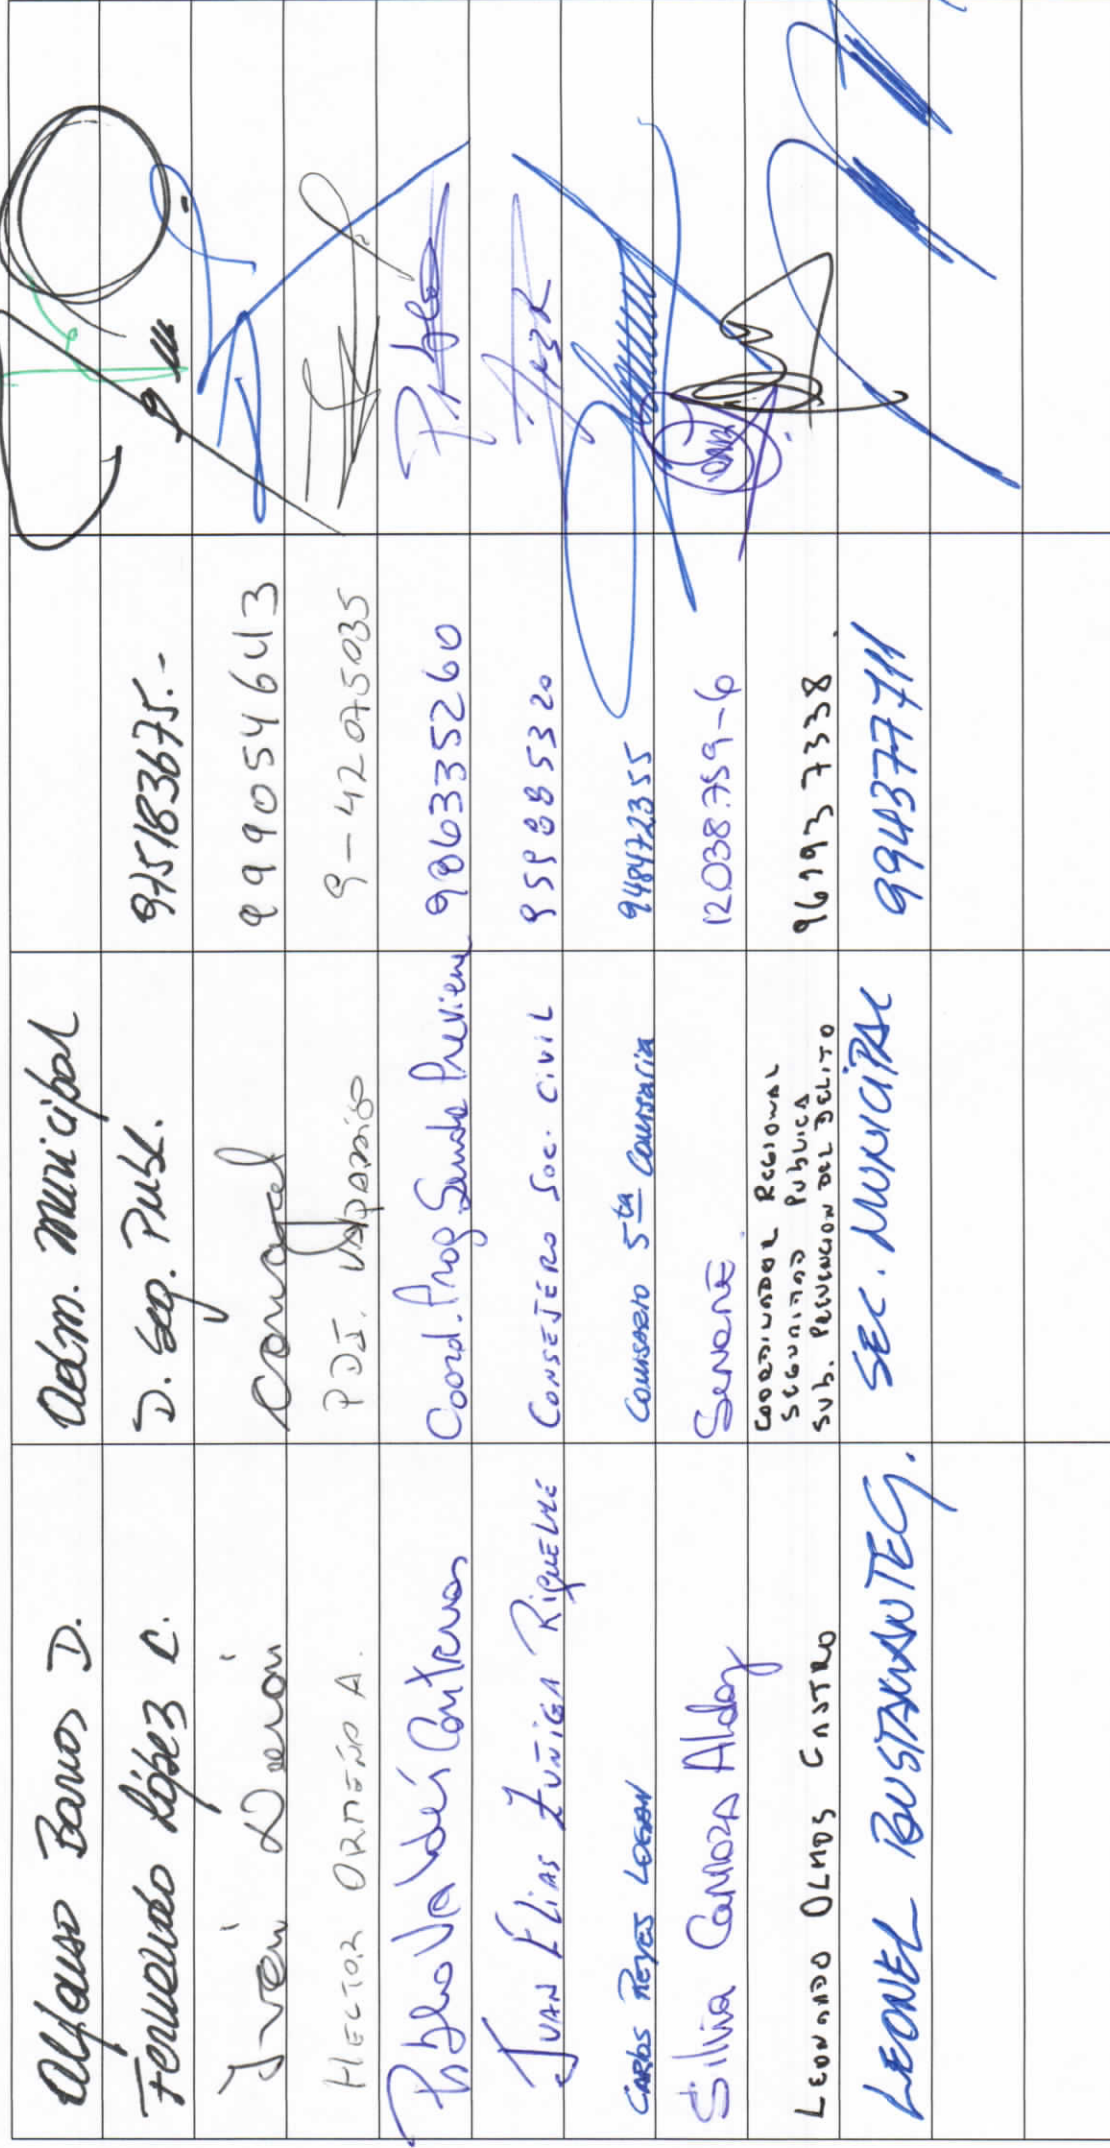 Alfonso Barros D. Adm. Municipal
Fernando López C. D. Seg. Publ. 975183675.-
Iván 999054643
HECTOR ORMEÑO A. PDI. VALPARAISO 9-42075035
Pablo Valdés Contreras Coord. Prog Senda Previene 986335260
JUAN ELIAS ZUÑIGA RIQUELME CONSEJERO SOC. CIVIL 959885320
CARLOS REYES LOGAN COMISARIO 5ta COMISARIA 948472355
Silvia Camora SENAME 12038759-6
LEONARDO OLMOS CASTRO COORDINADOR REGIONAL
SEGURIDAD PUBLICA
SUB. PREVENCION DEL DELITO 961937338.
LEONEL BUSTAMANTE G. SEC. MUNICIPAL 994377711